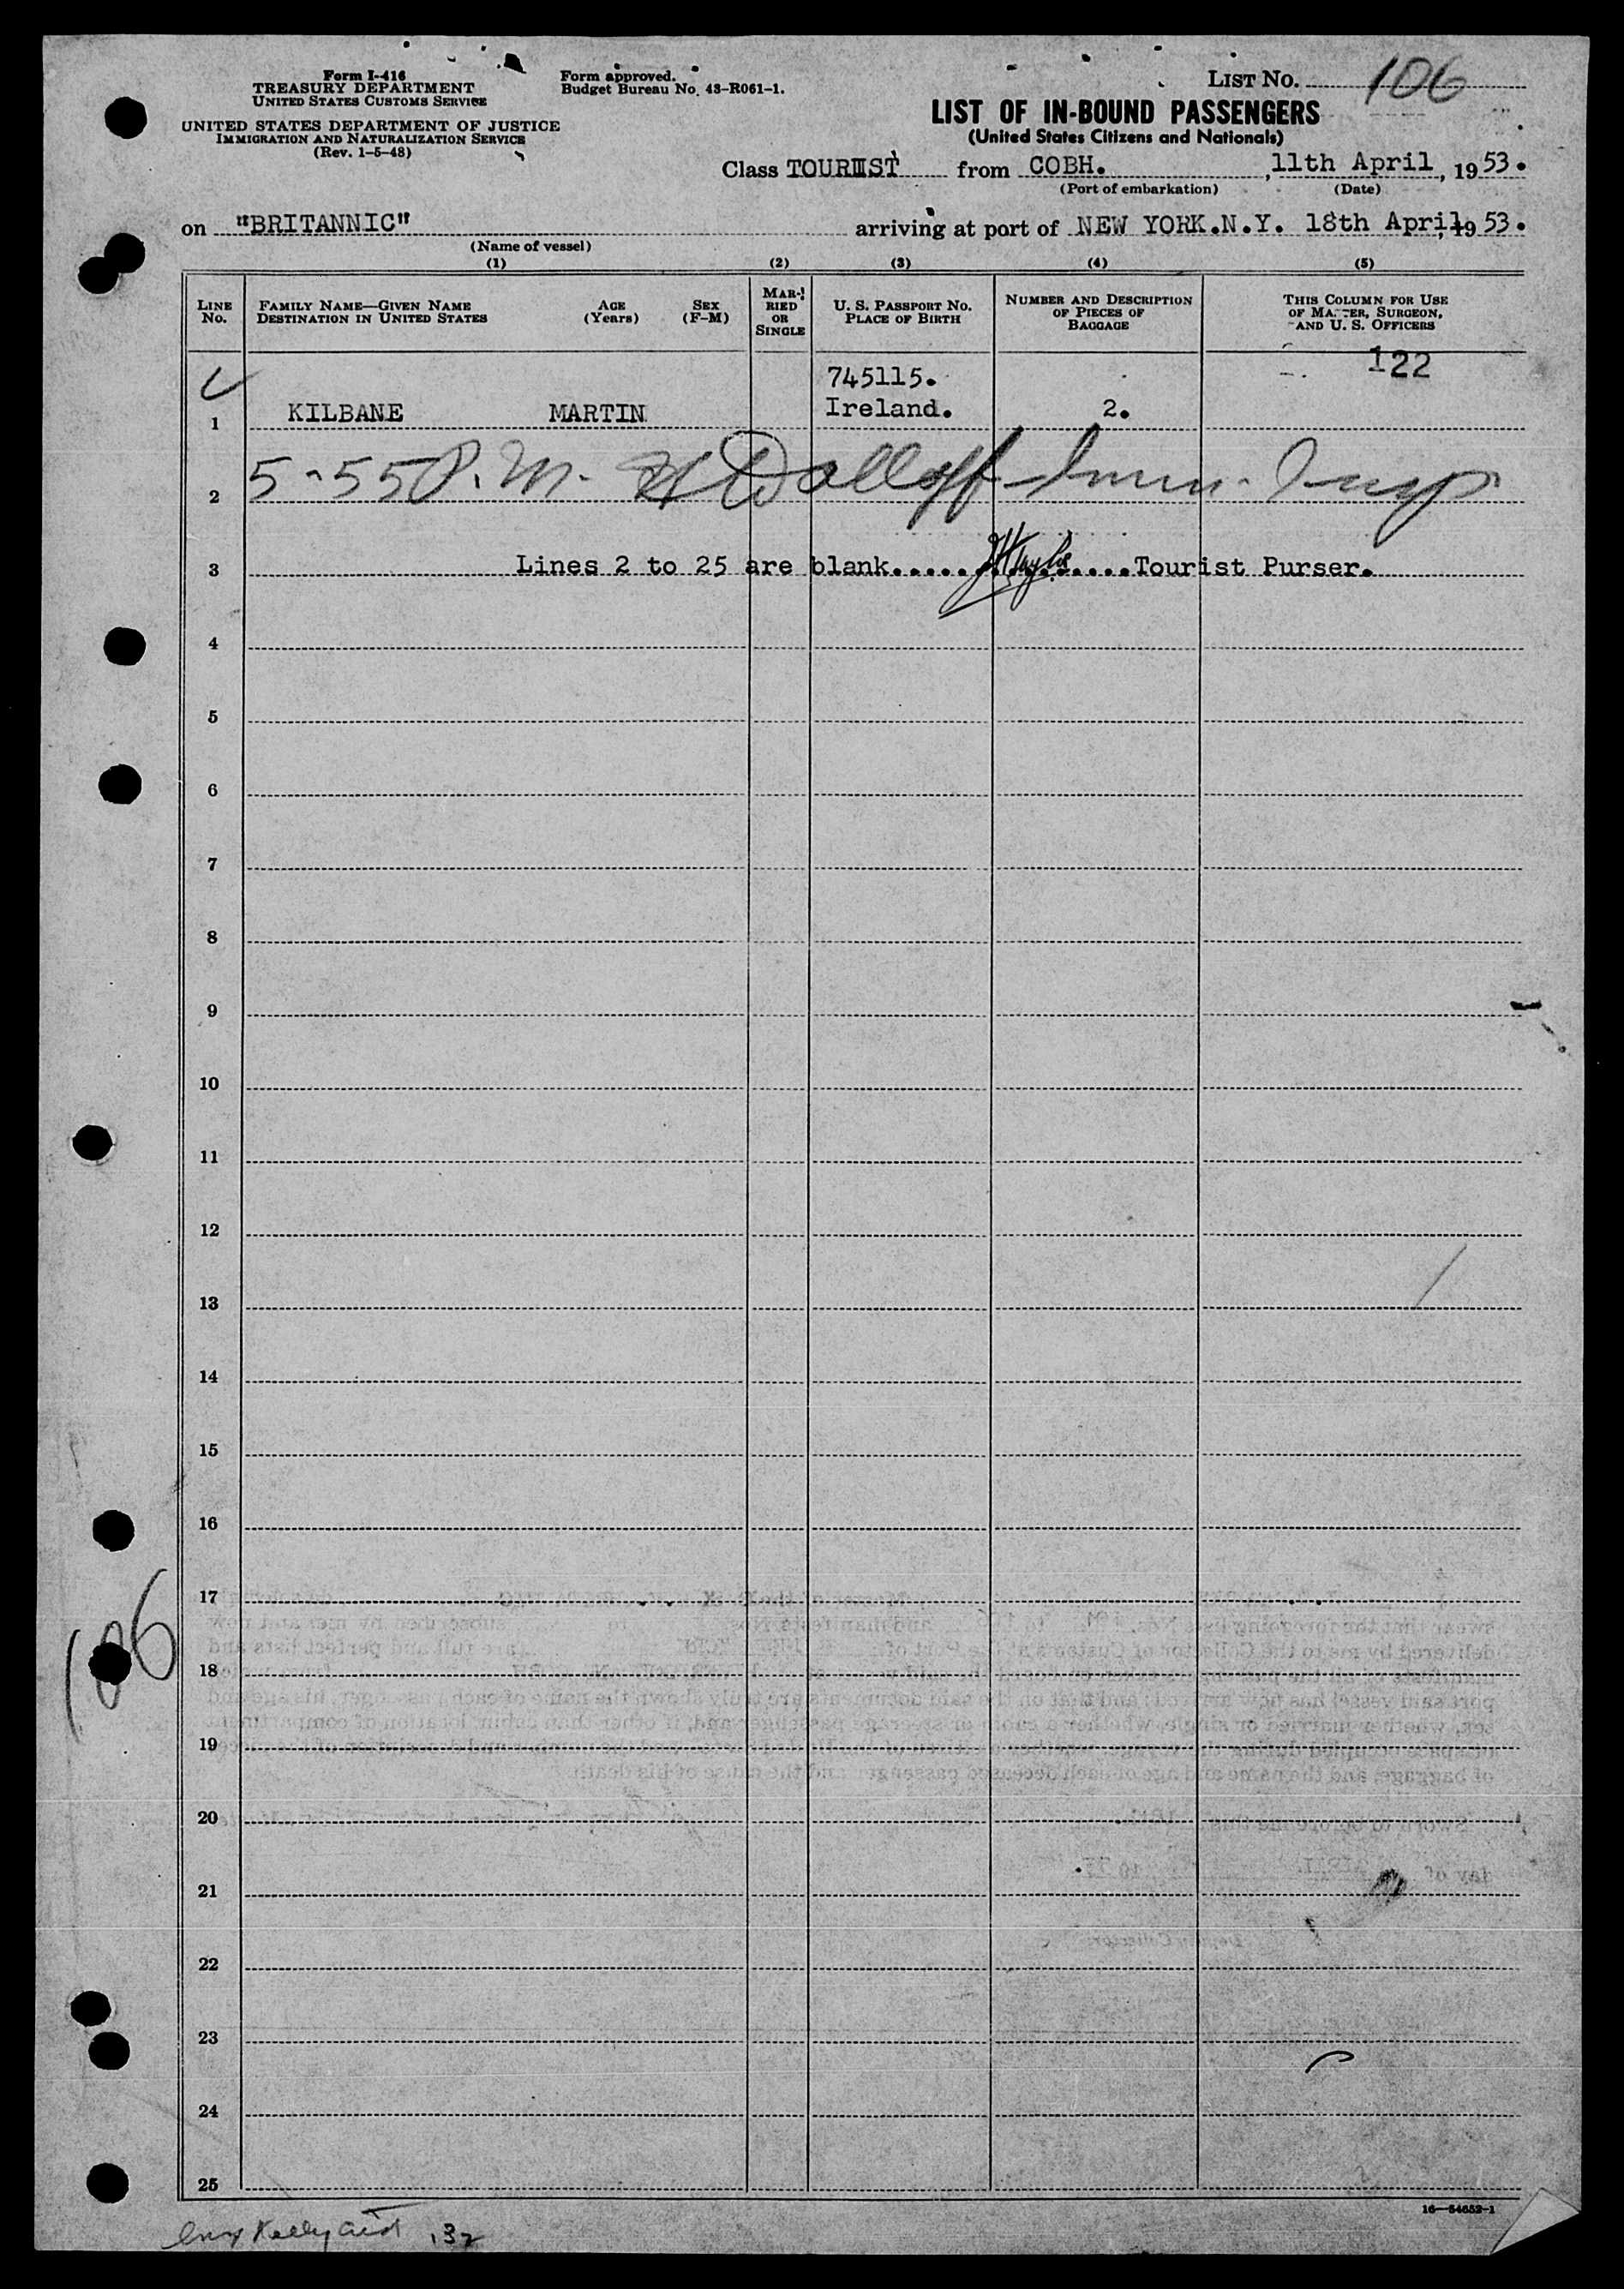 Form I-416
TREASURY DEPARTMENT
UNITED STATES CUSTOMS SERVICE
UNITED STATES DEPARTMENT OF JUSTICE
IMMIGRATION AND NATURALIZATION SERVICE
(Rev. 1-5-48)
Form approved.
Budget Bureau No. 43-R061-1.
LIST No. 106
LIST OF IN-BOUND PASSENGERS
(United States Citizens and Nationals)
Class TOURIST from COBH. , 11th April , 19 53.
(Port of embarkation) (Date)
on "BRITANNIC" arriving at port of NEW YORK.N.Y. 18th April, 19 53.
(Name of vessel)
(1) (2) (3) (4) (5)
LINE No. FAMILY NAME—GIVEN NAME DESTINATION IN UNITED STATES AGE (Years) SEX (F-M) MARRIED OR SINGLE U. S. PASSPORT No. PLACE OF BIRTH NUMBER AND DESCRIPTION OF PIECES OF BAGGAGE THIS COLUMN FOR USE OF MASTER, SURGEON, AND U. S. OFFICERS
122
745115.
1 KILBANE MARTIN Ireland. 2.
2 5-55 P.M. Imm. Insp.
3 Lines 2 to 25 are blank...............Tourist Purser.
4
5
6
7
8
9
10
11
12
13
14
15
16
17
106
18
19
20
21
22
23
24
25
16—54652-1
Kelly 132